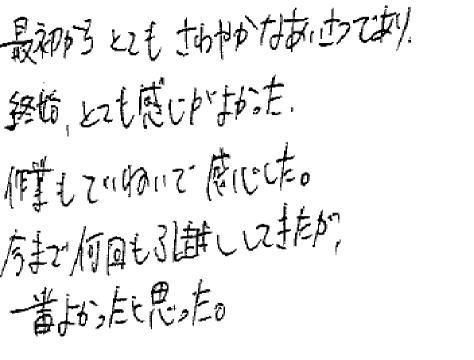 最初からとてもさわやかなあいさつであり、
終始、とても感じがよかった。
作業もていねいで感心した。
今まで何回も引越ししてきたが、
一番よかったと思った。